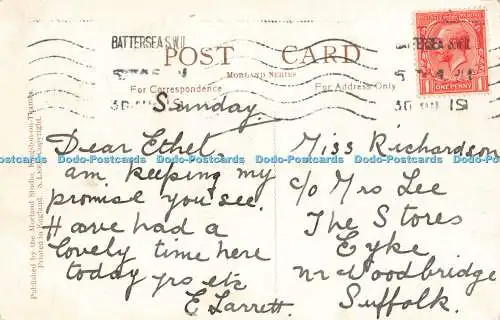 BATTERSEA S.W.11
POST CARD
MORLAND SERIES
BATTERSEA S.W.11
For Correspondence
For Address Only
ONE PENNY
30 19
30 19
Sunday.
Dear Ethel.
am keeping my
promise you see.
Have had a
lovely time here
today yrs etc
E. Garrett.
Miss Richardson
c/o Mrs Lee
The Stores
Eyke
nr Woodbridge
Suffolk.
Published by the Morland Studio, Kingston-on-Thames.
Printed in England. Copyright.
Dodo-Postcards Dodo-Postcards Dodo-Postcards Dodo-Postcards Dodo-Postcards